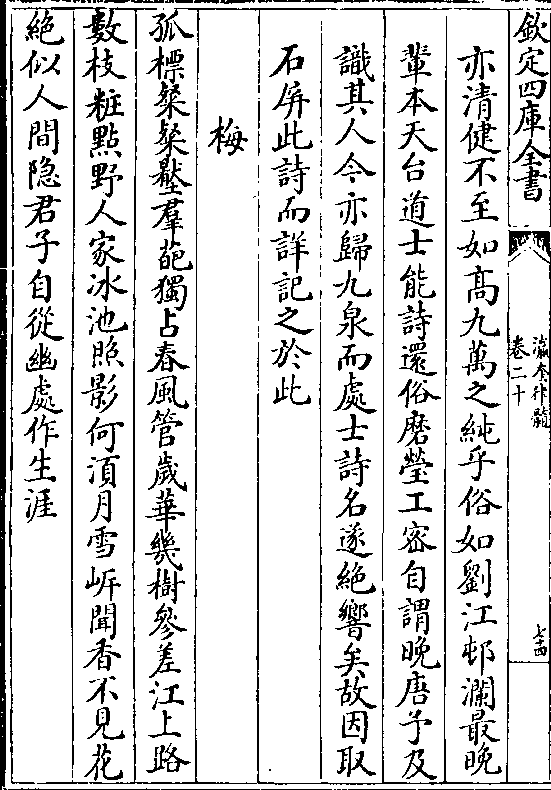 欽定四庫全書
瀛奎律髓
卷二十
七十四
亦清健不至如髙九萬之純乎俗如劉江邨瀾最晚
輩本天台道士能詩還俗磨瑩工宻自謂晚唐予及
識其人今亦歸九泉而處士詩名遂絶響矣故因取
石屏此詩而詳記之於此
梅
孤標粲粲壓羣葩獨占春風管歲華幾樹參差江上路
數枝粧點野人家冰池照影何湏月雪岸聞香不見花
絶似人間隐君子自從幽處作生涯